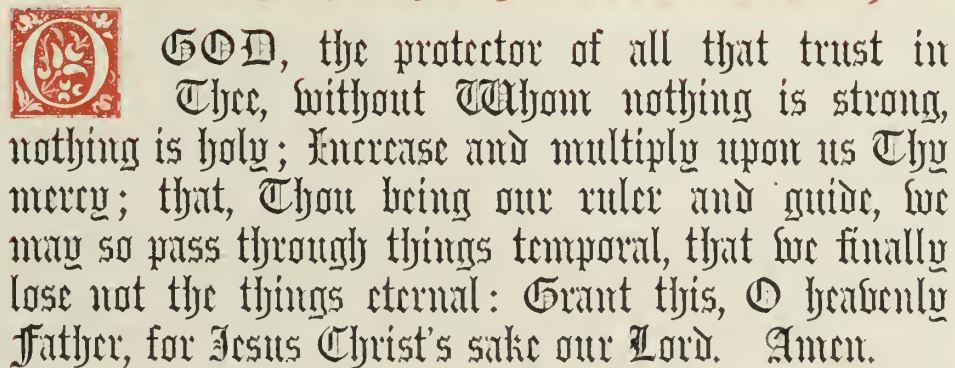 O GOD, the protector of all that trust in
Thee, without Whom nothing is strong,
nothing is holy; Increase and multiply upon us Thy
mercy; that, Thou being our ruler and guide, we
may so pass through things temporal, that we finally
lose not the things eternal: Grant this, O heavenly
Father, for Jesus Christ's sake our Lord. Amen.